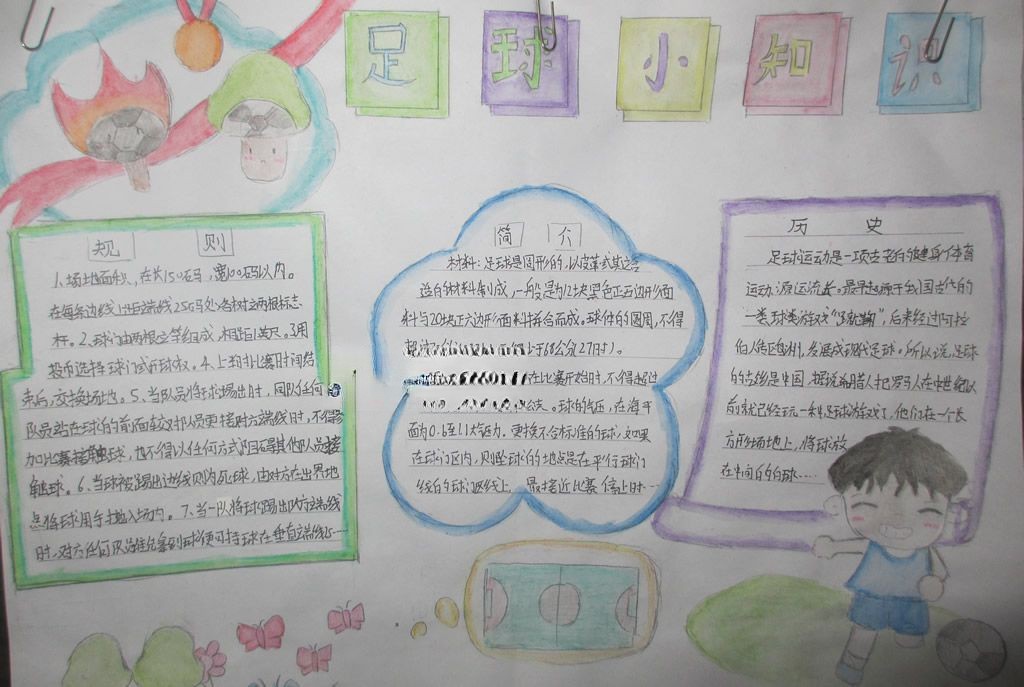 足球小知识
规则
1、场地面积,在长150码,宽100码以内。
在每条边线上距端线25码处各树立两根标志
杆。2、球门由两根立竿组成,相距8英尺。3、用
投币选择球门或开球权。4、上半时比赛时间结
束后,交换场地。5、当队员将球踢出时,同队任何
队员站在球的前面较对队员更接对方端线时,不得参
加比赛接触球,也不得以任何方式阻碍其他队员接
触球。6、当球被踢出边线则为死球,由对方在出界地
点将球用手掷入场内。7、当一队将球踢出队方端线
时,对方任何队员
球便可持球在垂直端线……
简介
材料:足球是圆形的,以皮革或其它合
适的材料制成,一般是为12块黑色正五边形面
料与20块正六边形面料拼合而成。球体的圆周,不得
于68公分(27吋)。
在比赛开始时,不得超过
球的气压,在海平
面为0.6至1.1大气压。更换不合标准的球,如果
在球门区内,则坠球的地点是在平行球门
线的球门区线上,最接近比赛停止时…
历史
足球运动是一项古老的健身体育
运动,源远流长。最早起源于我国古代的
一类球类游戏“蹴鞠”,后来经过阿拉
伯人传
欧洲,发展成现代足球,所以说,足球
的故乡是中国。据说希腊人和罗马人在中世纪以
前就已经玩一种足球游戏了,他们在一个长
方形场地上,将球放
在中间的白球……